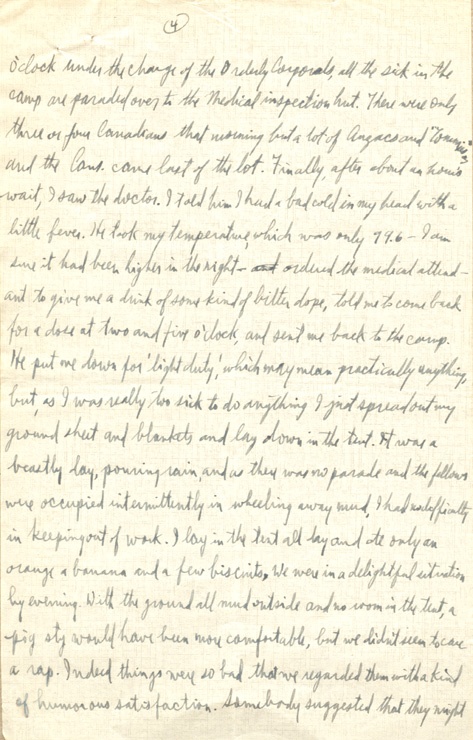 (4)
o'clock under the charge of the Orderly Corporals, all the sick in the
camp are paraded over to the Medical inspection hut. There were only
three or four Canadians that morning but a lot of Anzacs and "Tommies"
and the Cans. came last of the lot. Finally, after about an hours
wait, I saw the doctor. I told him I had a bad cold in my head with a
little fever. He took my temperature, which was only 99.6 – I am
sure it had been higher in the night – and ordered the medical attend-
ant to give me a drink of some kind of bitter dope, told me to come back
for a dose at two and five o'clock, and sent me back to the camp.
He put me down for 'light duty', which may mean practically anything
but, as I was really too sick to do anything I just spread out my
ground sheet and blankets and lay down in the tent. It was a
beastly day, pouring rain, and as there was no parade and the fellows
were occupied intermittently in wheeling away mud, I had no difficulty
in keeping out of work. I lay in the tent all day and ate only an
orange a banana and a few biscuits. We were in a delightful situation
by evening. With the ground all mud outside and no room in the tent, a
pig sty would have been more comfortable, but we didn't seem to care
a rap. Indeed things were so bad that we regarded them with a kind
of humorous satisfaction. Somebody suggested that they might